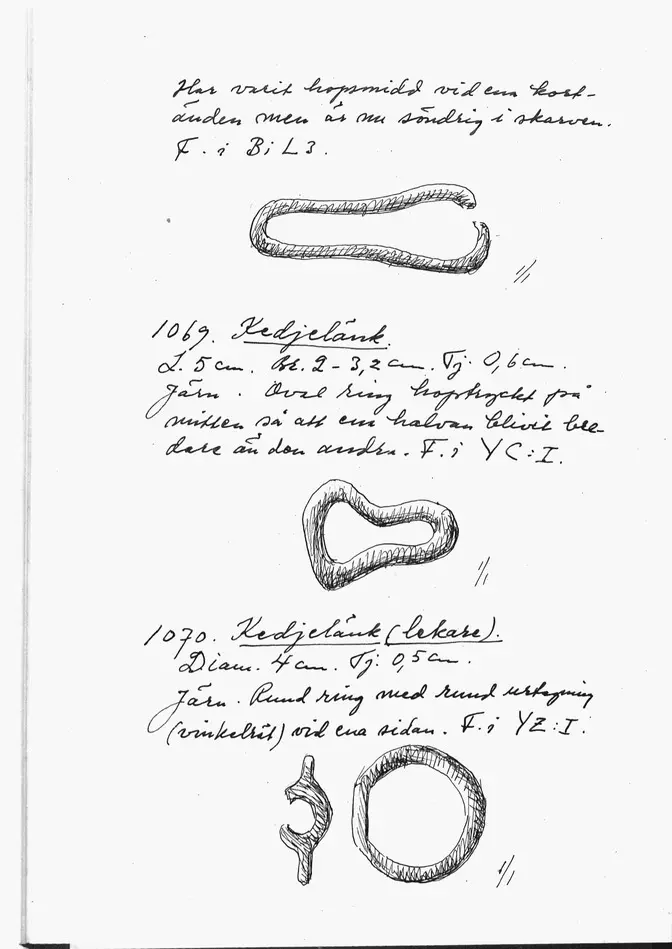 Har varit hopsmidd vid ena kort-
änden men är nu söndrig i skarven.
F. i Bi L3.
1/1
1069. Kedjelänk.
L. 5 cm. Br. 2 - 3,2 cm. Tj. 0,6 cm.
Järn. Oval ring hoptryckt på
mitten så att ena halvan blivit bre-
dare än den andra. F. i YC:I.
1/1
1070. Kedjelänk (lekare).
Diam. 4 cm. Tj. 0,5 cm.
Järn. Rund ring med rund urtagning
(vinkelrät) vid ena sidan. F. i YZ:I.
1/1